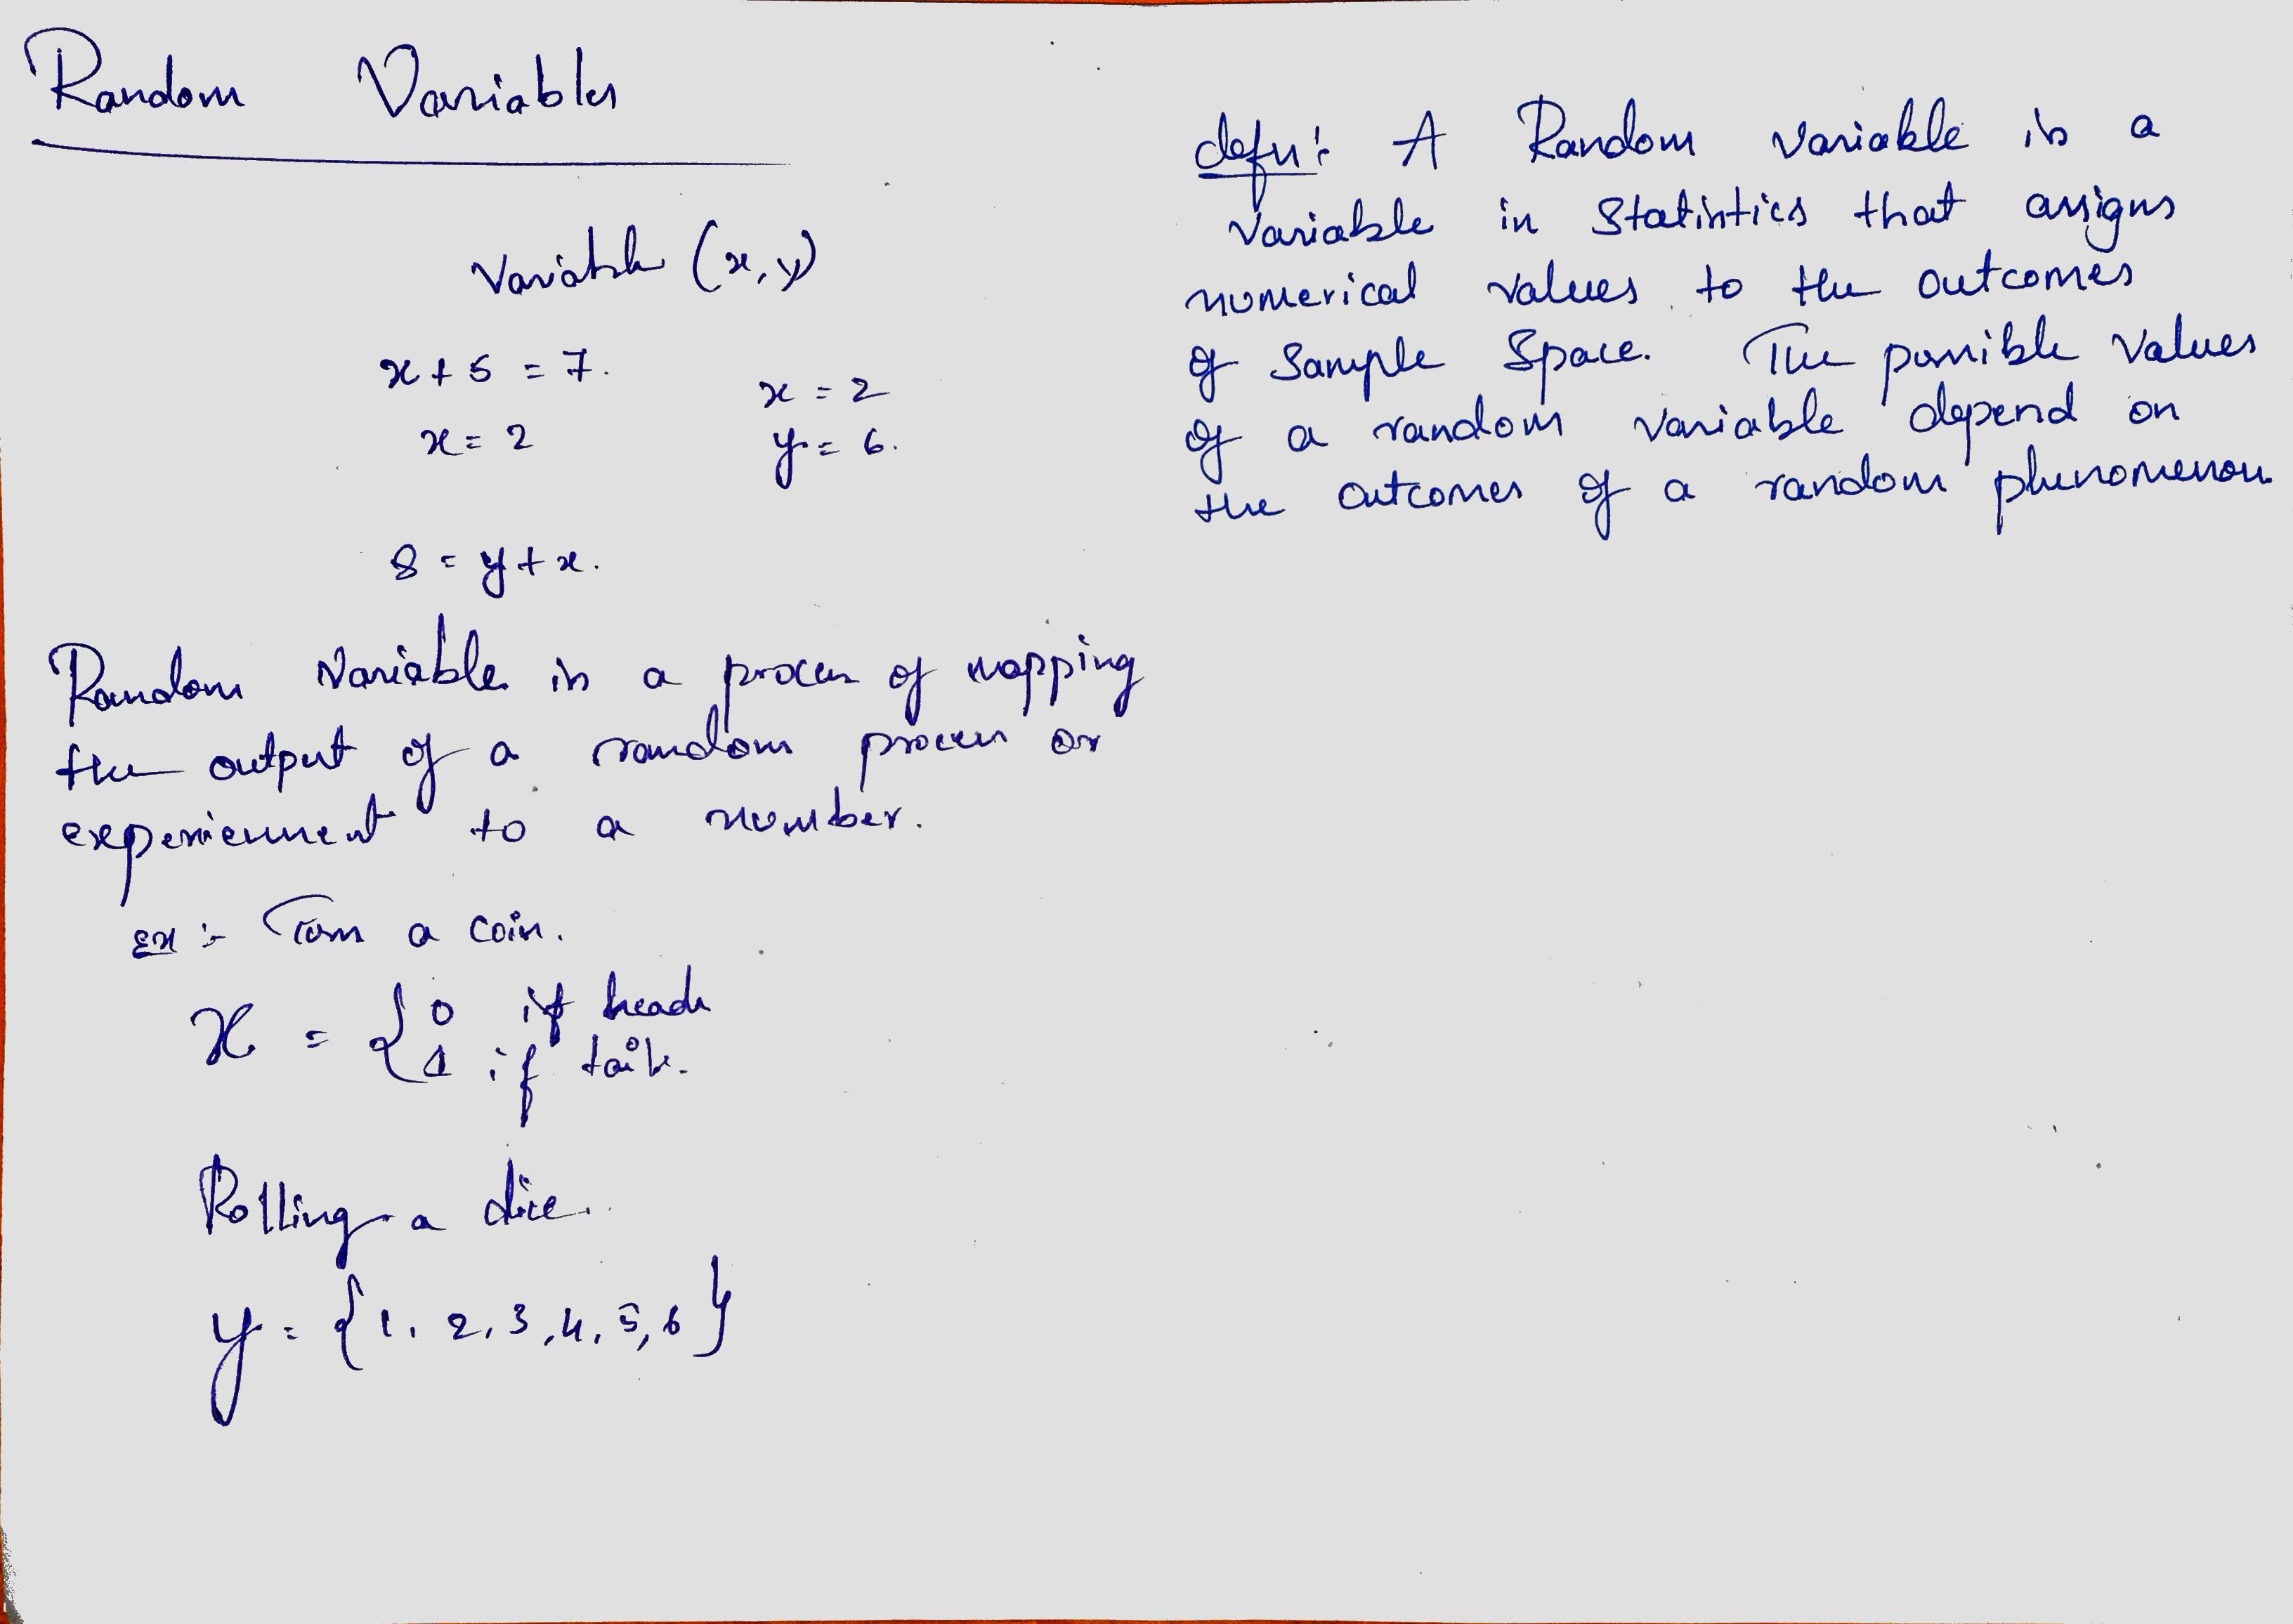 Random Variables
Variable (x, y)
x + 5 = 7.
x = 2
x = 2
y = 6.
8 = y + x.
Random Variable is a process of mapping
the output of a random process or
experienment to a number.
Ex :- Toss a coin.
X = { 0 if heads
1 if tails.
Rolling a dice.
y = {1, 2, 3, 4, 5, 6}
defn :- A Random variable is a
variable in Statistics that assigns
numerical values to the outcomes
of Sample Space. The possible values
of a random variable depend on
the outcomes of a random phenomenon